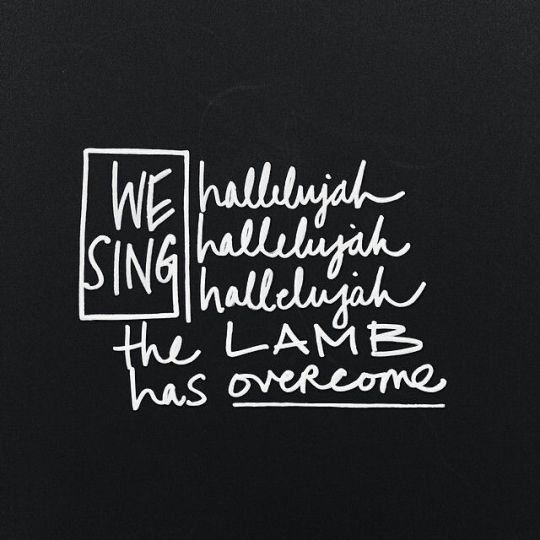 WE
SING
hallelujah
hallelujah
hallelujah
the LAMB
has overcome